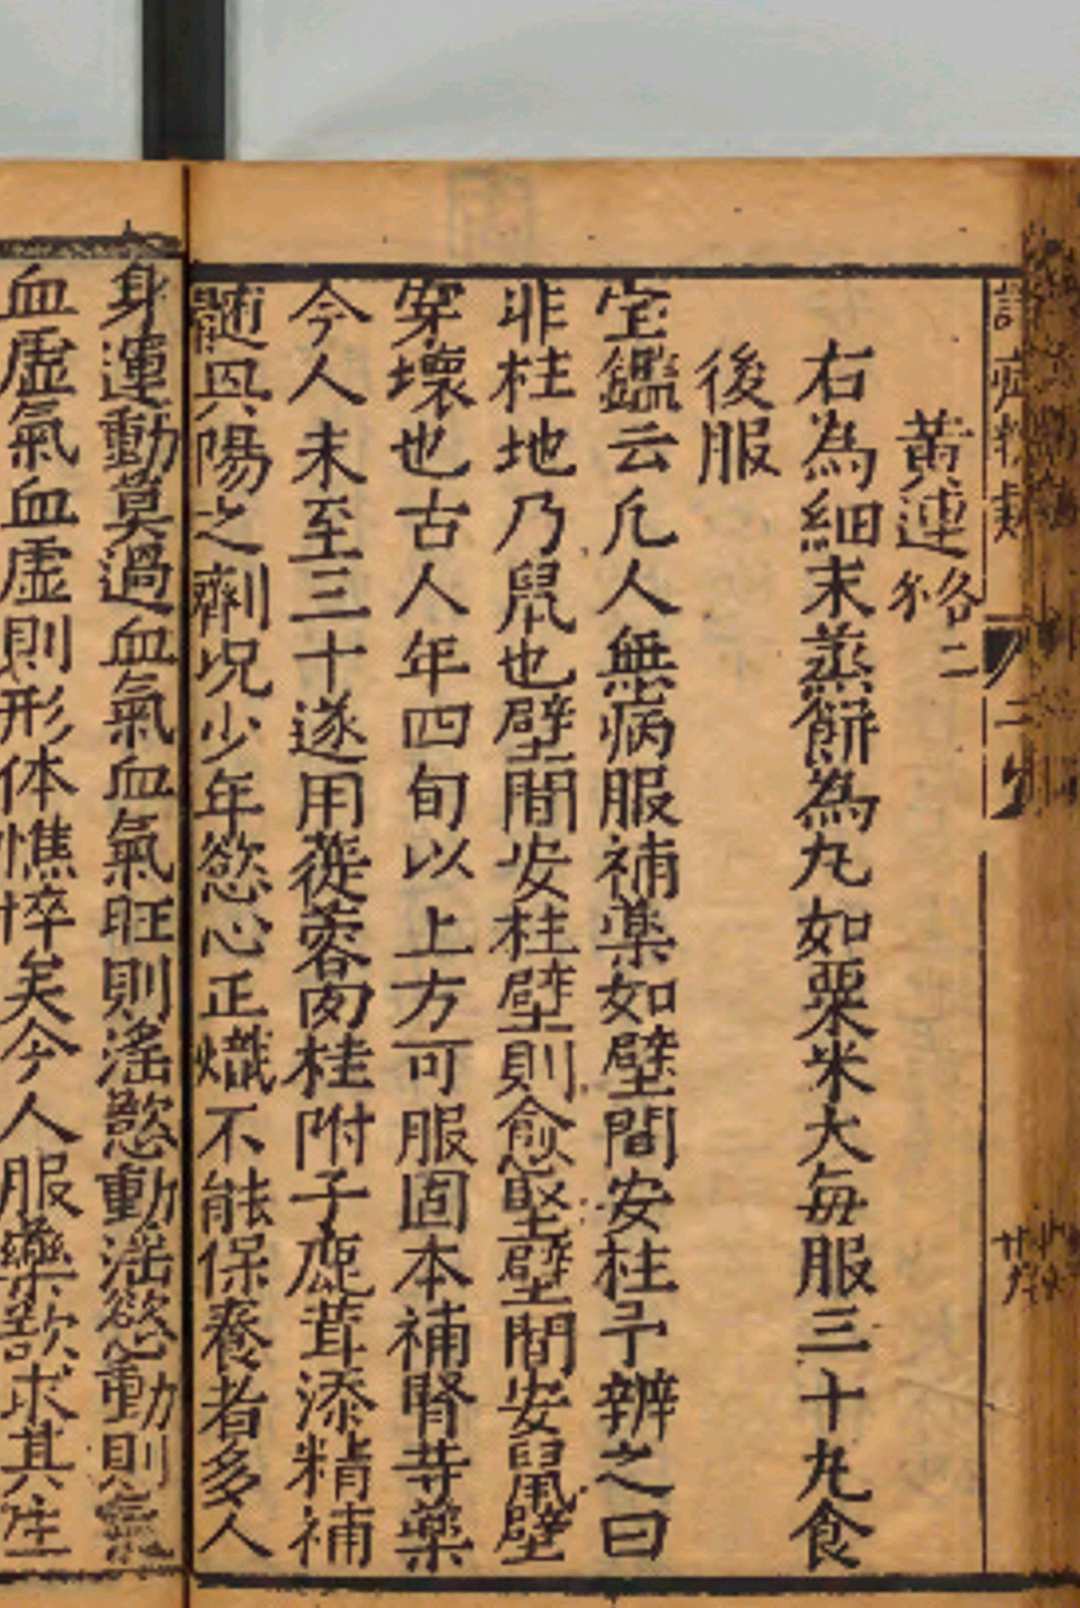 黃連 各二
右為細末蒸餅為丸如粟米大每服三十丸食
後服
宝鑑云凡人無病服補薬如壁間安柱予辨之曰
非柱地乃鼠也壁間安柱壁則愈堅壁間安鼠壁
穿壞也古人年四旬以上方可服固本補腎䓁藥
今人未至三十遂用蓯蓉肉桂附子鹿茸添精補
髓具陽之劑况少年慾心正熾不能保養者多人
身運動莫過血氣血氣旺則滛慾動滛慾動則
血虛氣血虛則形体憔悴矣今人服藥欲求其生